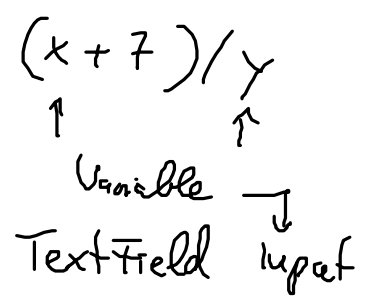 (x + 7)/y
Variable
Textfield Input